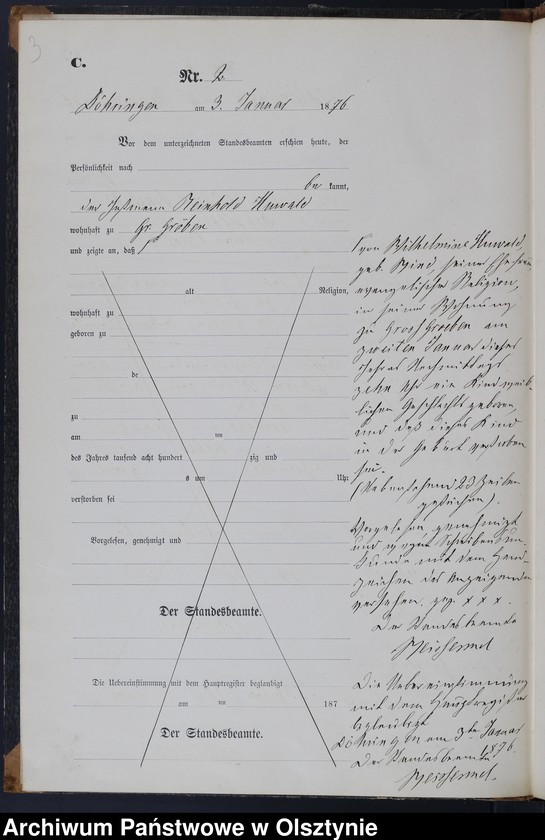 3
C.
Nr. 2
Döhringen am 3. Januar 1876
Vor dem unterzeichneten Standesbeamten erschien heute, der
Persönlichkeit nach
be kannt,
der Instmann Reinhold Huwald
wohnhaft zu Gr. Gröben
und zeigte an, daß
alt Religion,
wohnhaft zu
geboren zu
de
zu
am um
des Jahres tausend acht hundert zig und
s um Uhr
verstorben sei
Vorgelesen, genehmigt und
Der Standesbeamte.
Die Uebereinstimmung mit dem Hauptregister beglaubigt
am ten 187
Der Standesbeamte.
von Wilhelmine Huwald,
geb. seiner Ehefrau,
evangelischer Religion,
in seiner Wohnung
zu Gross Groeben am
zweiten Januar dieses
Jahres Nachmittags
zehn Uhr ein Kind weib-
lichen Geschlechts geboren,
und daß dieses Kind
in der Geburt verstorben
sei.
(Nebenstehend 23 Zeilen
gestrichen).
Vorgelesen genehmigt
und wegen Schreibensun-
kunde mit dem Hand-
zeichen des Anzeigenden
versehen. gez. x x x.
Der Standesbeamte
Die Uebereinstimmung
mit dem Hauptregister
beglaubigt
Döhringen am 3ten Januar
1876.
Der Standesbeamte
Archiwum Państwowe w Olsztynie